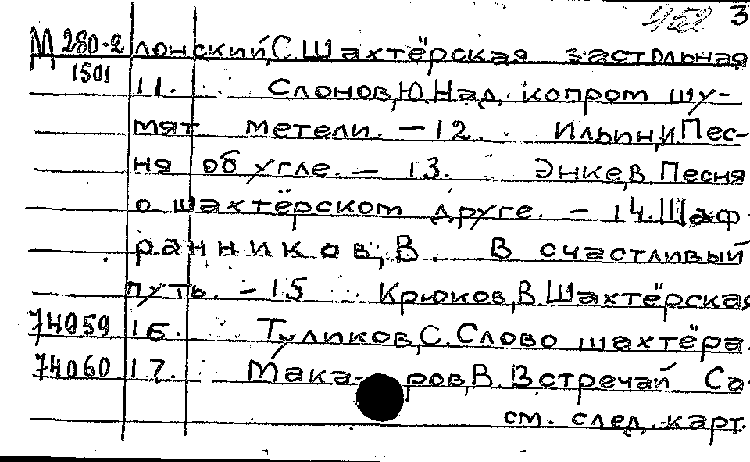 452 3
М 280-2 лонский, С. Шахтёрская застольная
1501 11. Слонов, Ю. Над копром шу-
мят метели. — 12. Ильин, И. Пес-
ня об угле. — 13. Энке, В. Песня
о шахтёрском друге. — 14. Шаф-
ранников, В. В счастливый
путь. — 15 Крюков, В. Шахтёрская
74059 16. Туликов, С. Слово шахтёра.
74060 17. Мака- ров, В. Встречай Со-
см. след. карт.